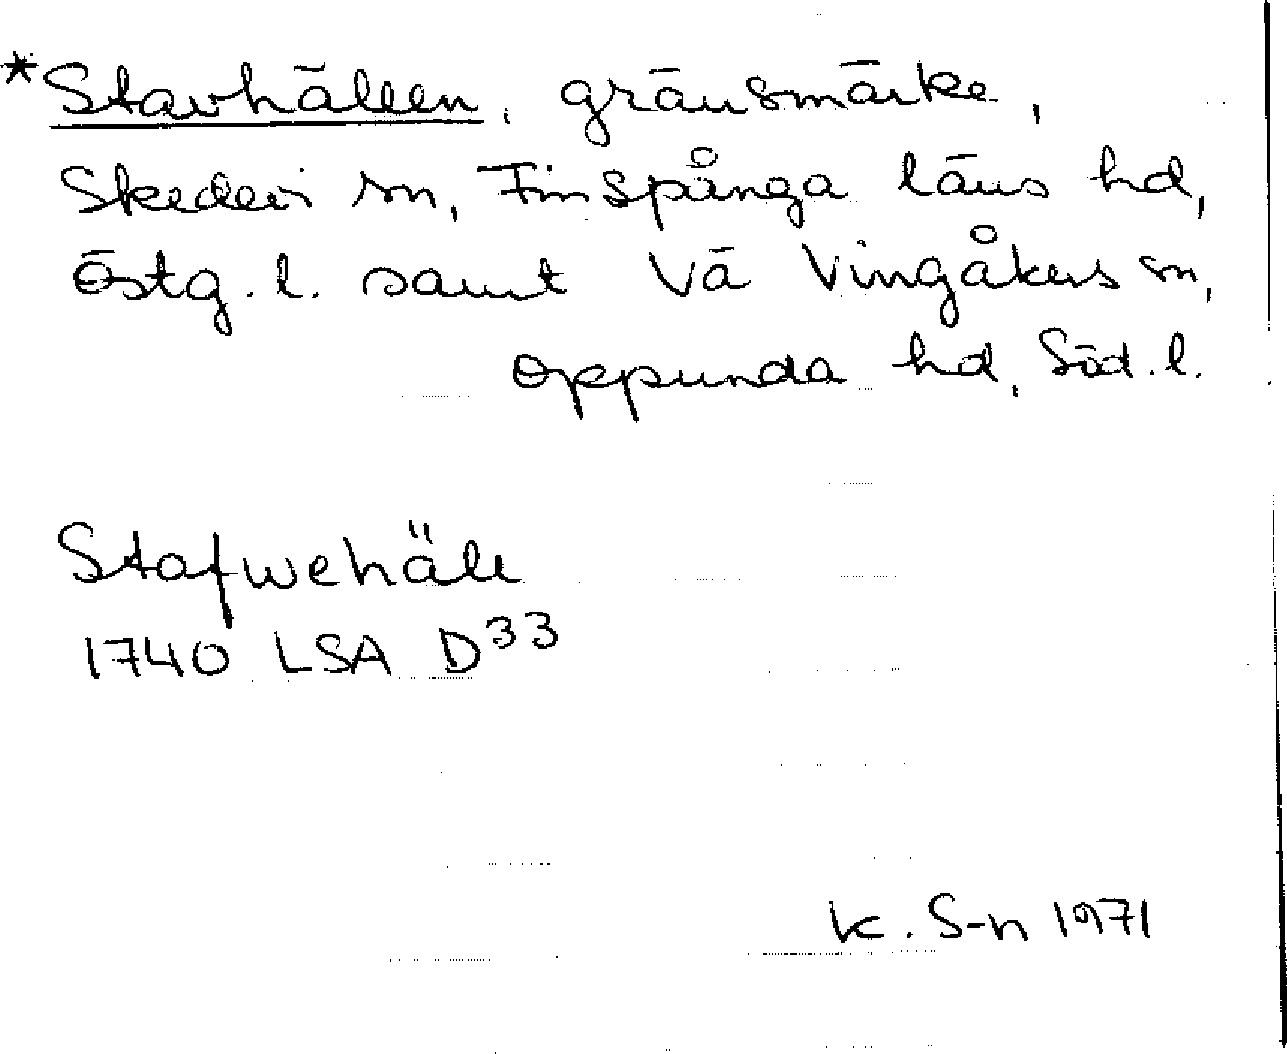 *Stavhällen, gränsmärke,
Skedevi sn, Finspånga läns hd,
Östg. l. samt Vä Vingåkers sn,
Oppunda hd, Söd. l.
Stafwehäll
1740 LSA D33
K. S-n 1971